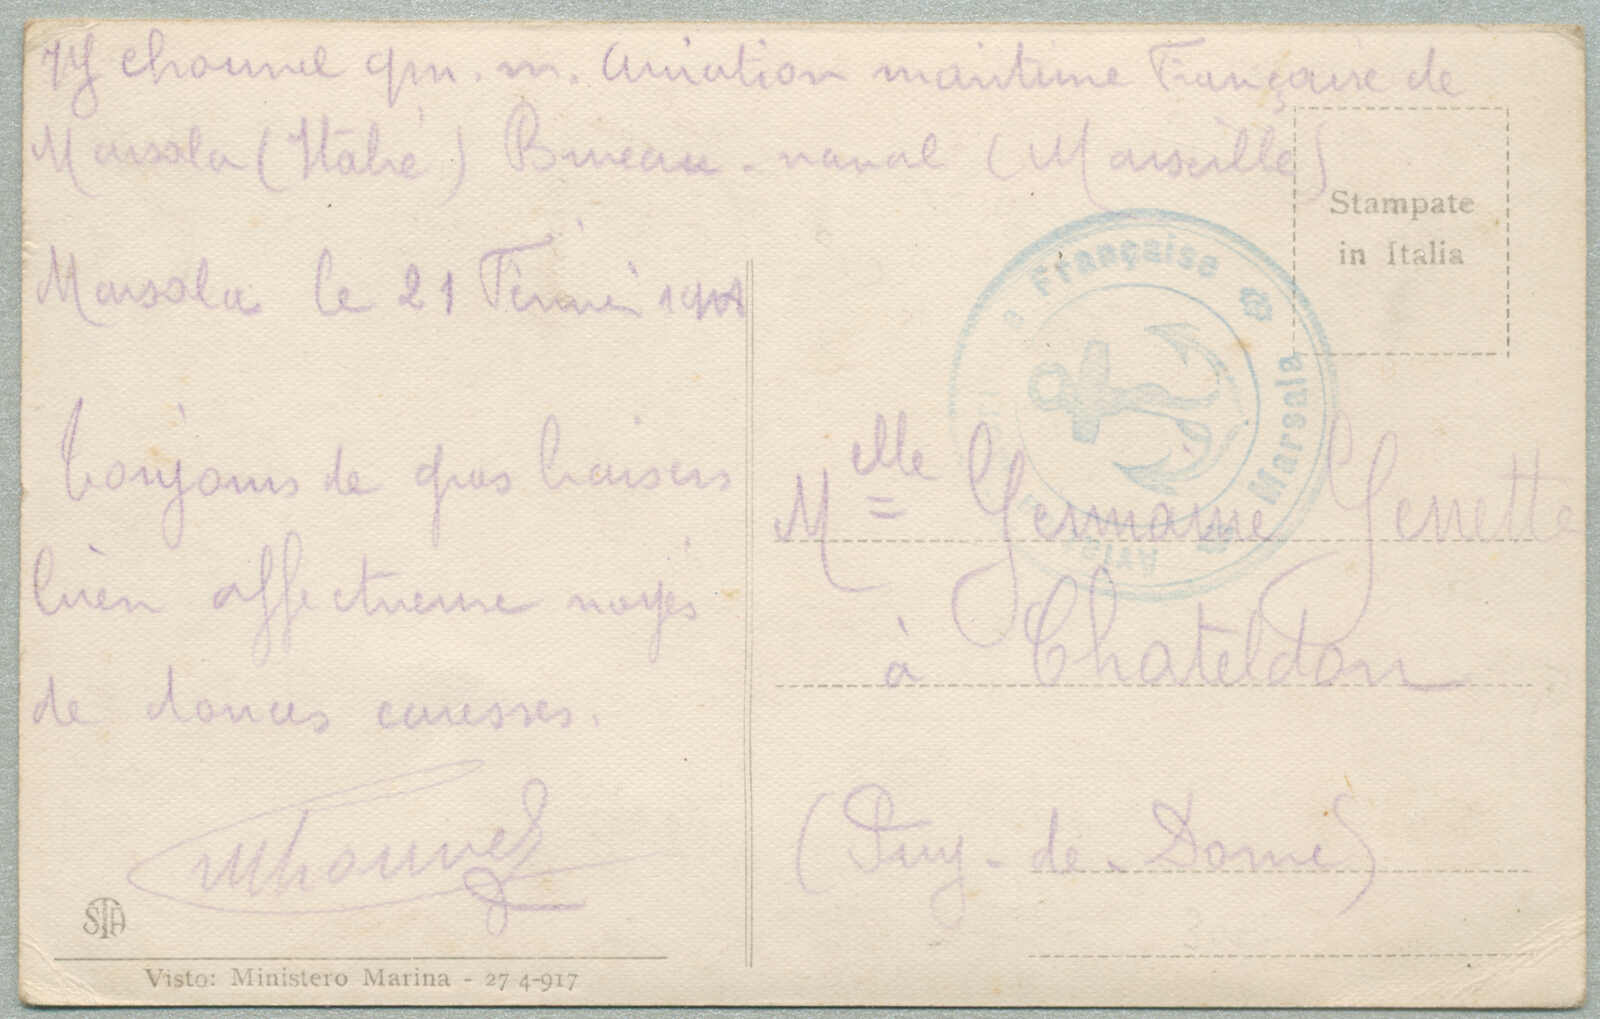 chouvel qm. m. aviation maritime Française de
Marsala (Italie) Bureau-naval (Marseille)
Stampate
in Italia
Marsala le 21 Février 1918
Française
Marsala
Toujours de gros baisers
bien affectueuse noyés
de douces caresses.
Melle Germaine Genette
à Chateldon
(Puy-de-Dome)
Chouvel
STA
Visto: Ministero Marina - 27 4-917